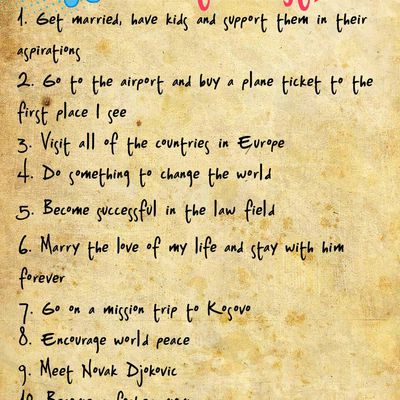 1. Get married, have kids and support them in their
aspirations
2. Go to the airport and buy a plane ticket to the
first place I see
3. Visit all of the countries in Europe
4. Do something to change the world
5. Become successful in the law field
6. Marry the love of my life and stay with him
forever
7. Go on a mission trip to Kosovo
8. Encourage world peace
9. Meet Novak Djokovic